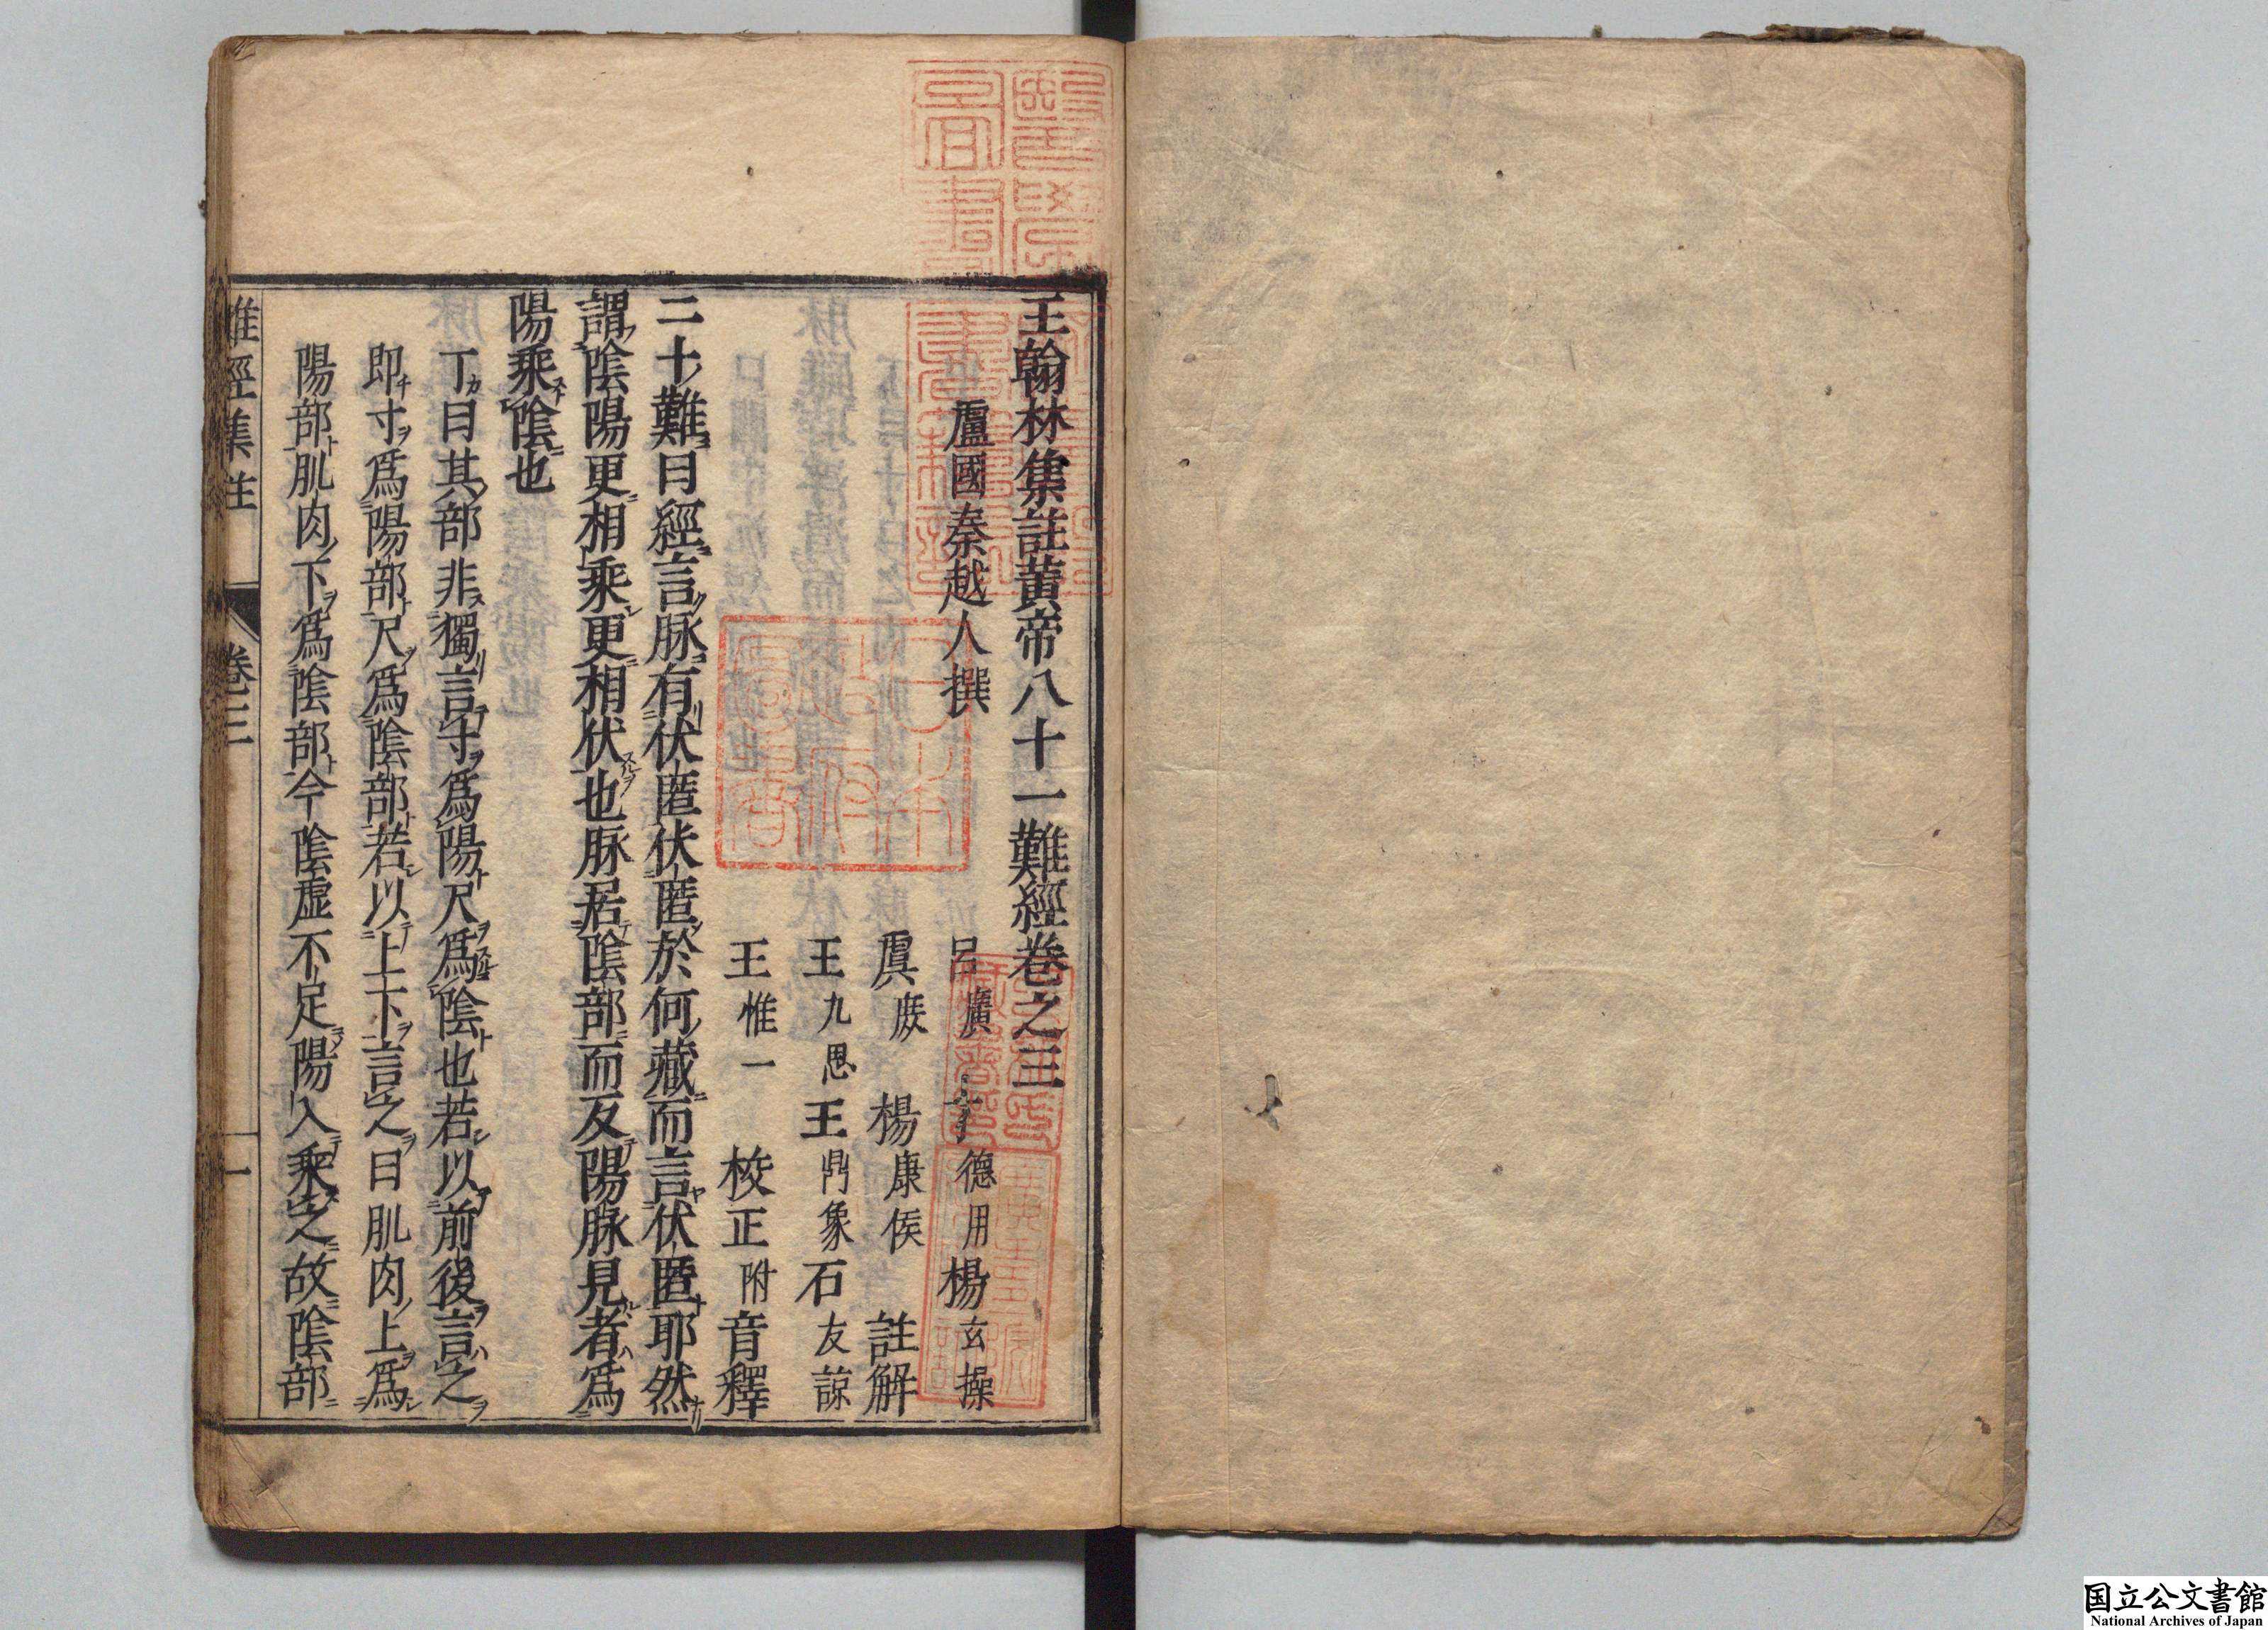 王翰林集註黃帝八十一難經卷之三
盧國秦越人撰
呂廣 丁德用 楊玄操
虞庶 楊康侯 註解
王九思 王鼎象 石友諒
王惟一 校正附音釋
二十難曰經言脉有伏匿伏匿於何藏而言伏匿耶然
謂陰陽更相乘更相伏也脉居陰部而反陽脉見者爲
陽乘陰也
丁曰其部非獨言寸爲陽尺爲陰也若以前後言之
即寸爲陽部尺爲陰部若以上下言之曰肌肉上爲
陽部肌肉下爲陰部今陰虛不足陽入乘之故陰部
難經集註 卷三 一
国立公文書館
National Archives of Japan